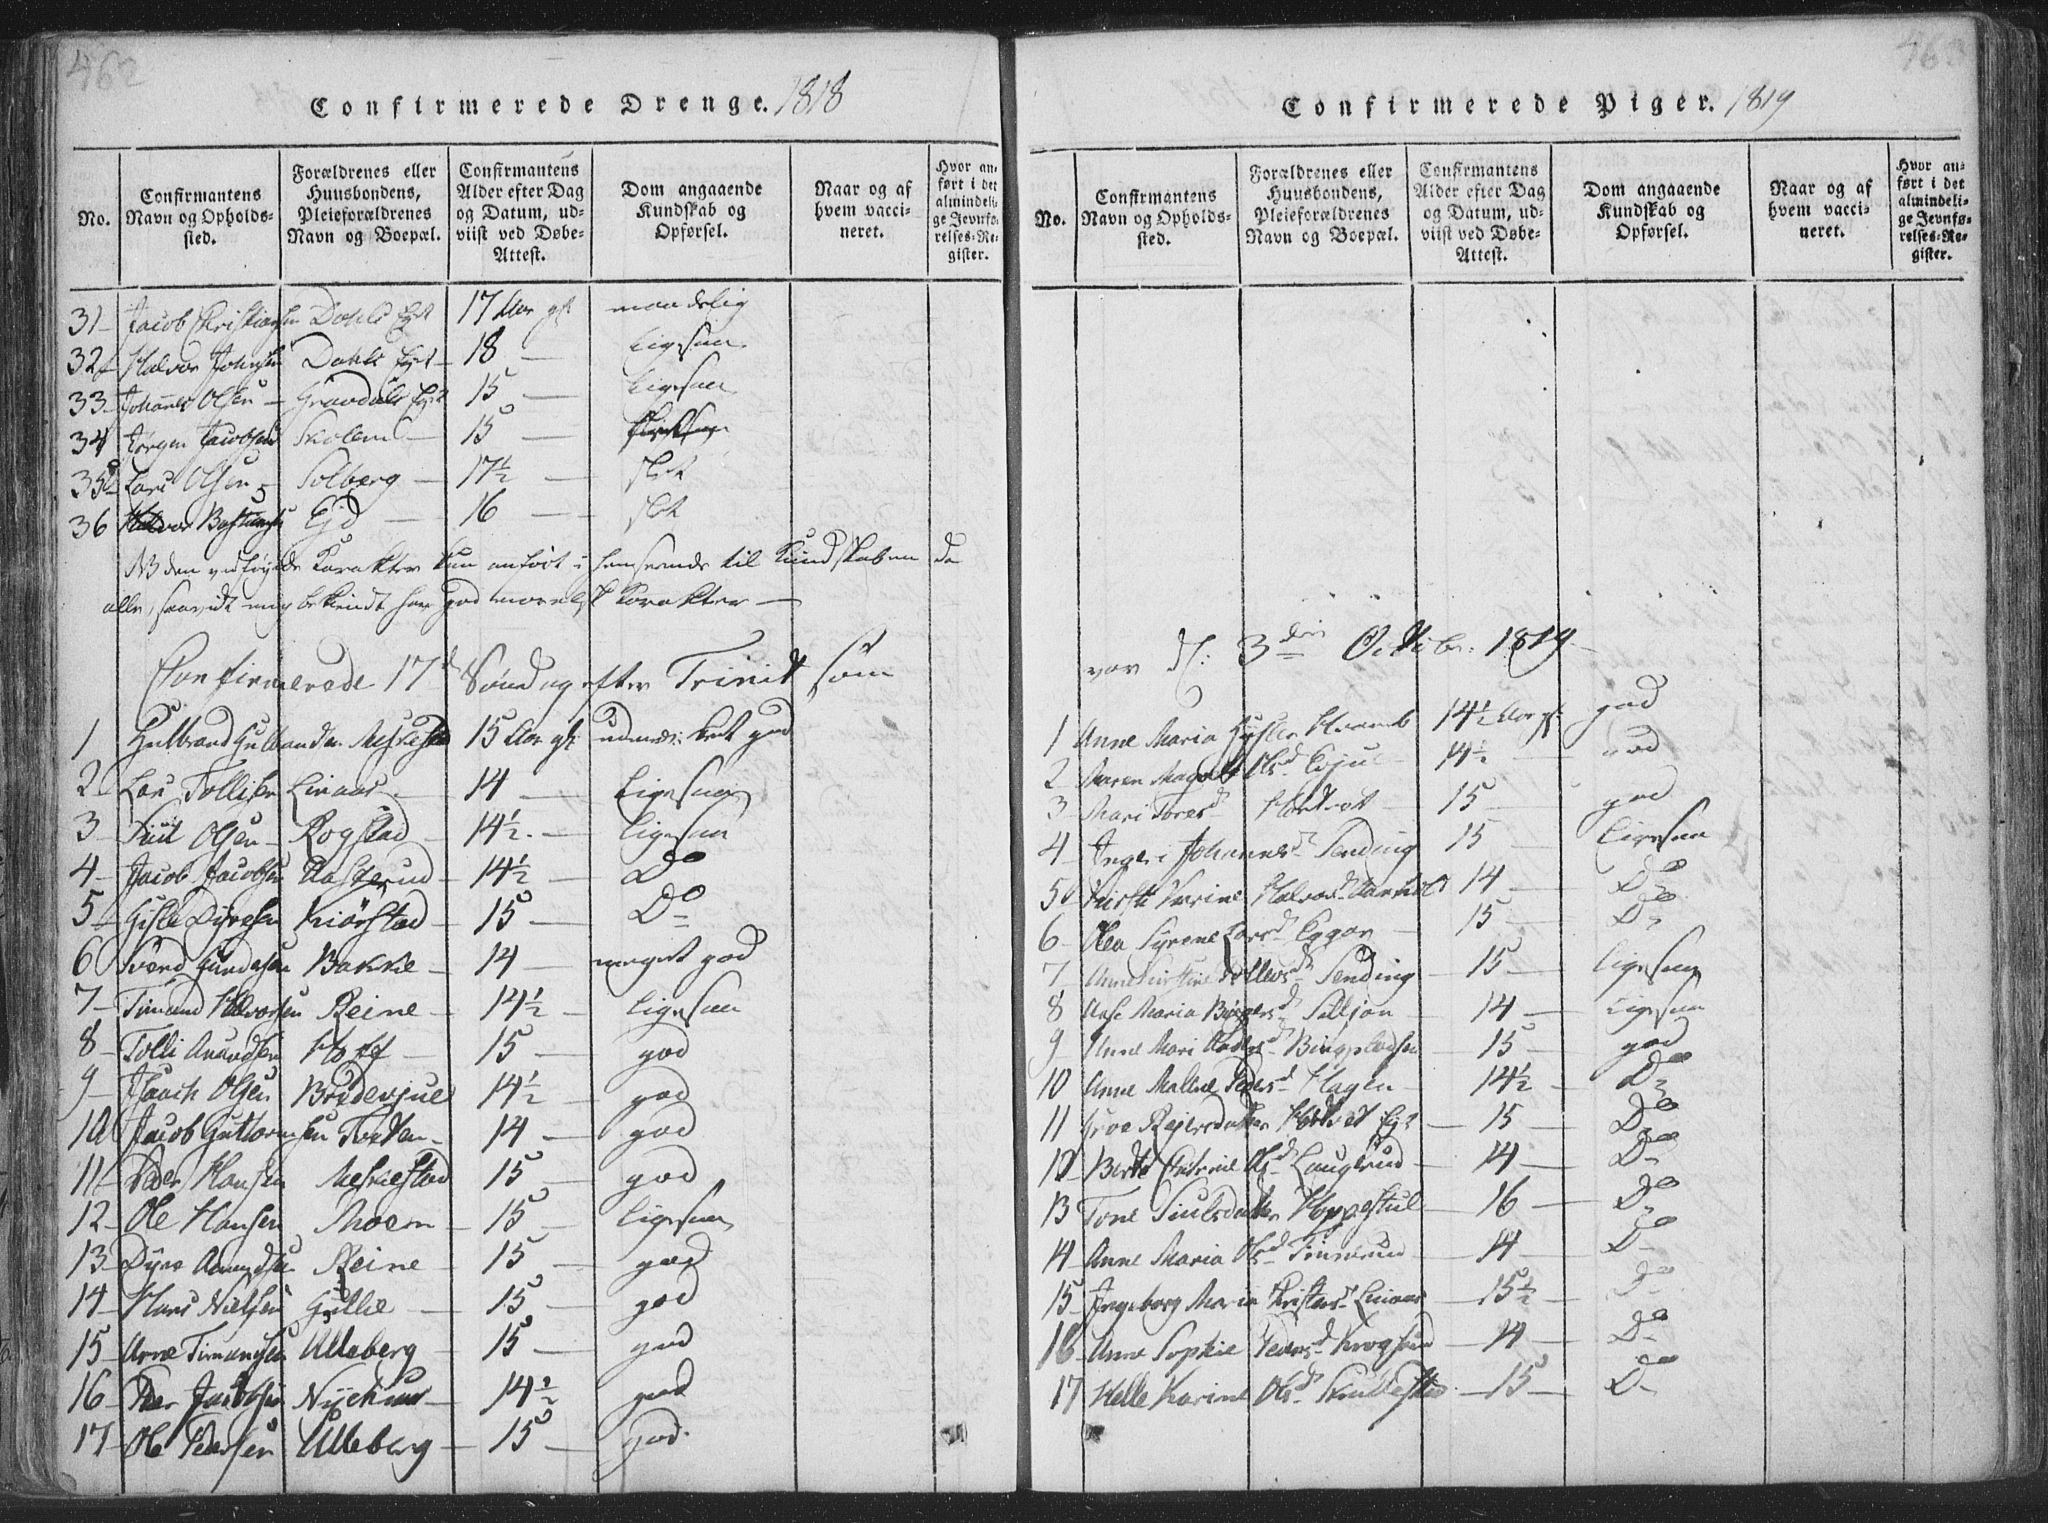 462
Confirmerede Drenge. 1818
No.
Confirmantens Navn og Opholdssted.
Forældrenes eller Huusbondens, Pleieforældrenes Navn og Boepæl.
Confirmantens Alder efter Dag og Datum, udviist ved Døbe-Attest.
Dom angaaende Kundskab og Opførsel.
Naar og af hvem vaccineret.
Hvor anført i det almindelige Jevnførelses-Register.
31 Jacob Christiansen Dahls Ejet 17 Aar gl maadelig
32 Halvor Johnsen Dahls Ejet 18 — Ligesaa
33 Johannes Olsen — Gravdals Ejet 15 — Ligesaa
34 Jørgen Jacobsen Skolem — 15 —
35 Lars Olsen Solberg — 17½ — slet
36 Halvor Ejd — 16 — slet
NB den vedføyede Karakter kun anført i henseende til Kundskaben da
alle, saavidt mig bekiendt har god moralsk Karakter —
Confirmerede 17d Søndag efter Trinit som
1 Gulbrand Gulbrands. Meskestad 15 Aar gl: udmær: ket god
2 Lars Tollisen Linaae — 14 — Ligesaa
3 Siul Olsen — Rogstad — 14½ — Ligesaa
4 Jacob Jacobsen Aasterud — 14½ — Do
5 Gisle Dyresen Kiørstad — 15 — Do
6 Svend Gundesen Bakke — 14 — meget god
7 Timand Halvorsen Reine — 14½ — Ligesaa
8 Tolli Amundsen Hoff — 15 — god
9 Isaach Olsen Bredevjue 14½ — god
10 Jacob Guttormsen Foden — 14 — god
11 Peder Hansen Meskestad 15 — god
12 Ole Hansen Moem — 15 — Ligesaa
13 Dyre Amundsen Reine — 15 — god
14 Hans Nielsen Gullie — 15 — god
15 Arne Timansen Ulleberg — 15 — god
16 Peder Jacobsen — 14½ — god
17 Ole Pedersen Ulleberg — 15 — god.
463
Confirmerede Piger. 1819
No.
Confirmantens Navn og Opholdssted.
Forældrenes eller Huusbondens, Pleieforældrenes Navn og Boepæl.
Confirmantens Alder efter Dag og Datum, udviist ved Døbe-Attest.
Dom angaaende Kundskab og Opførsel.
Naar og af hvem vaccineret.
Hvor anført i det almindelige Jevnførelses-Register.
var d: 3die Octobr: 1819.
1 Anne Maria 14½ Aar gl: god
2 Maren Olsd 14½ — god
3 Mari Toresd 15 — god
4 Ingeri Johannesd Sending 15 — Ligesaa
5 Kirsti Karine Halvorsd 14 — Do
6 Olea Syrene Larsd Eggar — 15 — Do
7 Anne Kirstine Tollevsd Sending — 15 — Ligesaa
8 Aase Maria Birgersd Silljon — 14 — Ligesaa
9 Anne Mari — 15 — god
10 Anne Malene Pedersd Hagen — 14½ — Do
11 Rejersdatter Hordvet Ejet — 15 — Do
12 Berte Olsd Laugerud — 14 — Do
13 Tone Siulsdatter Hoppestul — 16 — Do
14 Anne Maria Olsd Timmerud — 14 — Do
15 Ingeborg Maria Kristensd Linaae — 15½ — Do
16 Anne Sophie Pedersd — 14 — Do
17 Helle Karine Olsd — 15 — Do